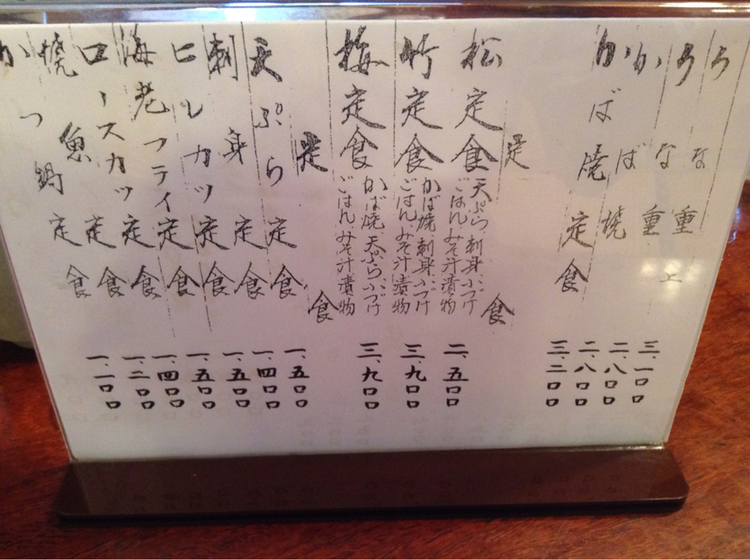 うな重上 三.一〇〇
うな重 二.八〇〇
かば焼 二.八〇〇
かば焼定食 三.二〇〇
定食
松定食 天ぷら 刺身 小づけ
ごはん みそ汁 漬物 二.五〇〇
竹定食 かば焼 刺身 小づけ
ごはん みそ汁 漬物 三.九〇〇
梅定食 かば焼 天ぷら 小づけ
ごはん みそ汁 漬物 三.九〇〇
定食
天ぷら定食 一.五〇〇
刺身定食 一.四〇〇
ヒレカツ定食 一.五〇〇
海老フライ定食 一.五〇〇
ロースカツ定食 一.四〇〇
焼魚定食 一.二〇〇
かつ鍋定食 一.一〇〇